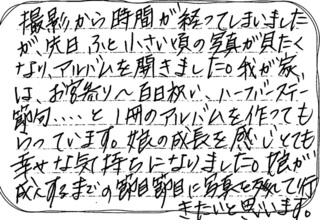 撮影から時間が経ってしまいました
が、先日、ふと小さい頃の写真が見たく
なり、アルバムを開きました。我が家
は、お宮参り〜百日祝い、ハーフバースデー
節句....と1冊のアルバムを作っても
らっています。娘の成長を感じとても
幸せな気持ちになりました。娘が
成人するまでの節目節目に写真を残して行
きたいと思います。